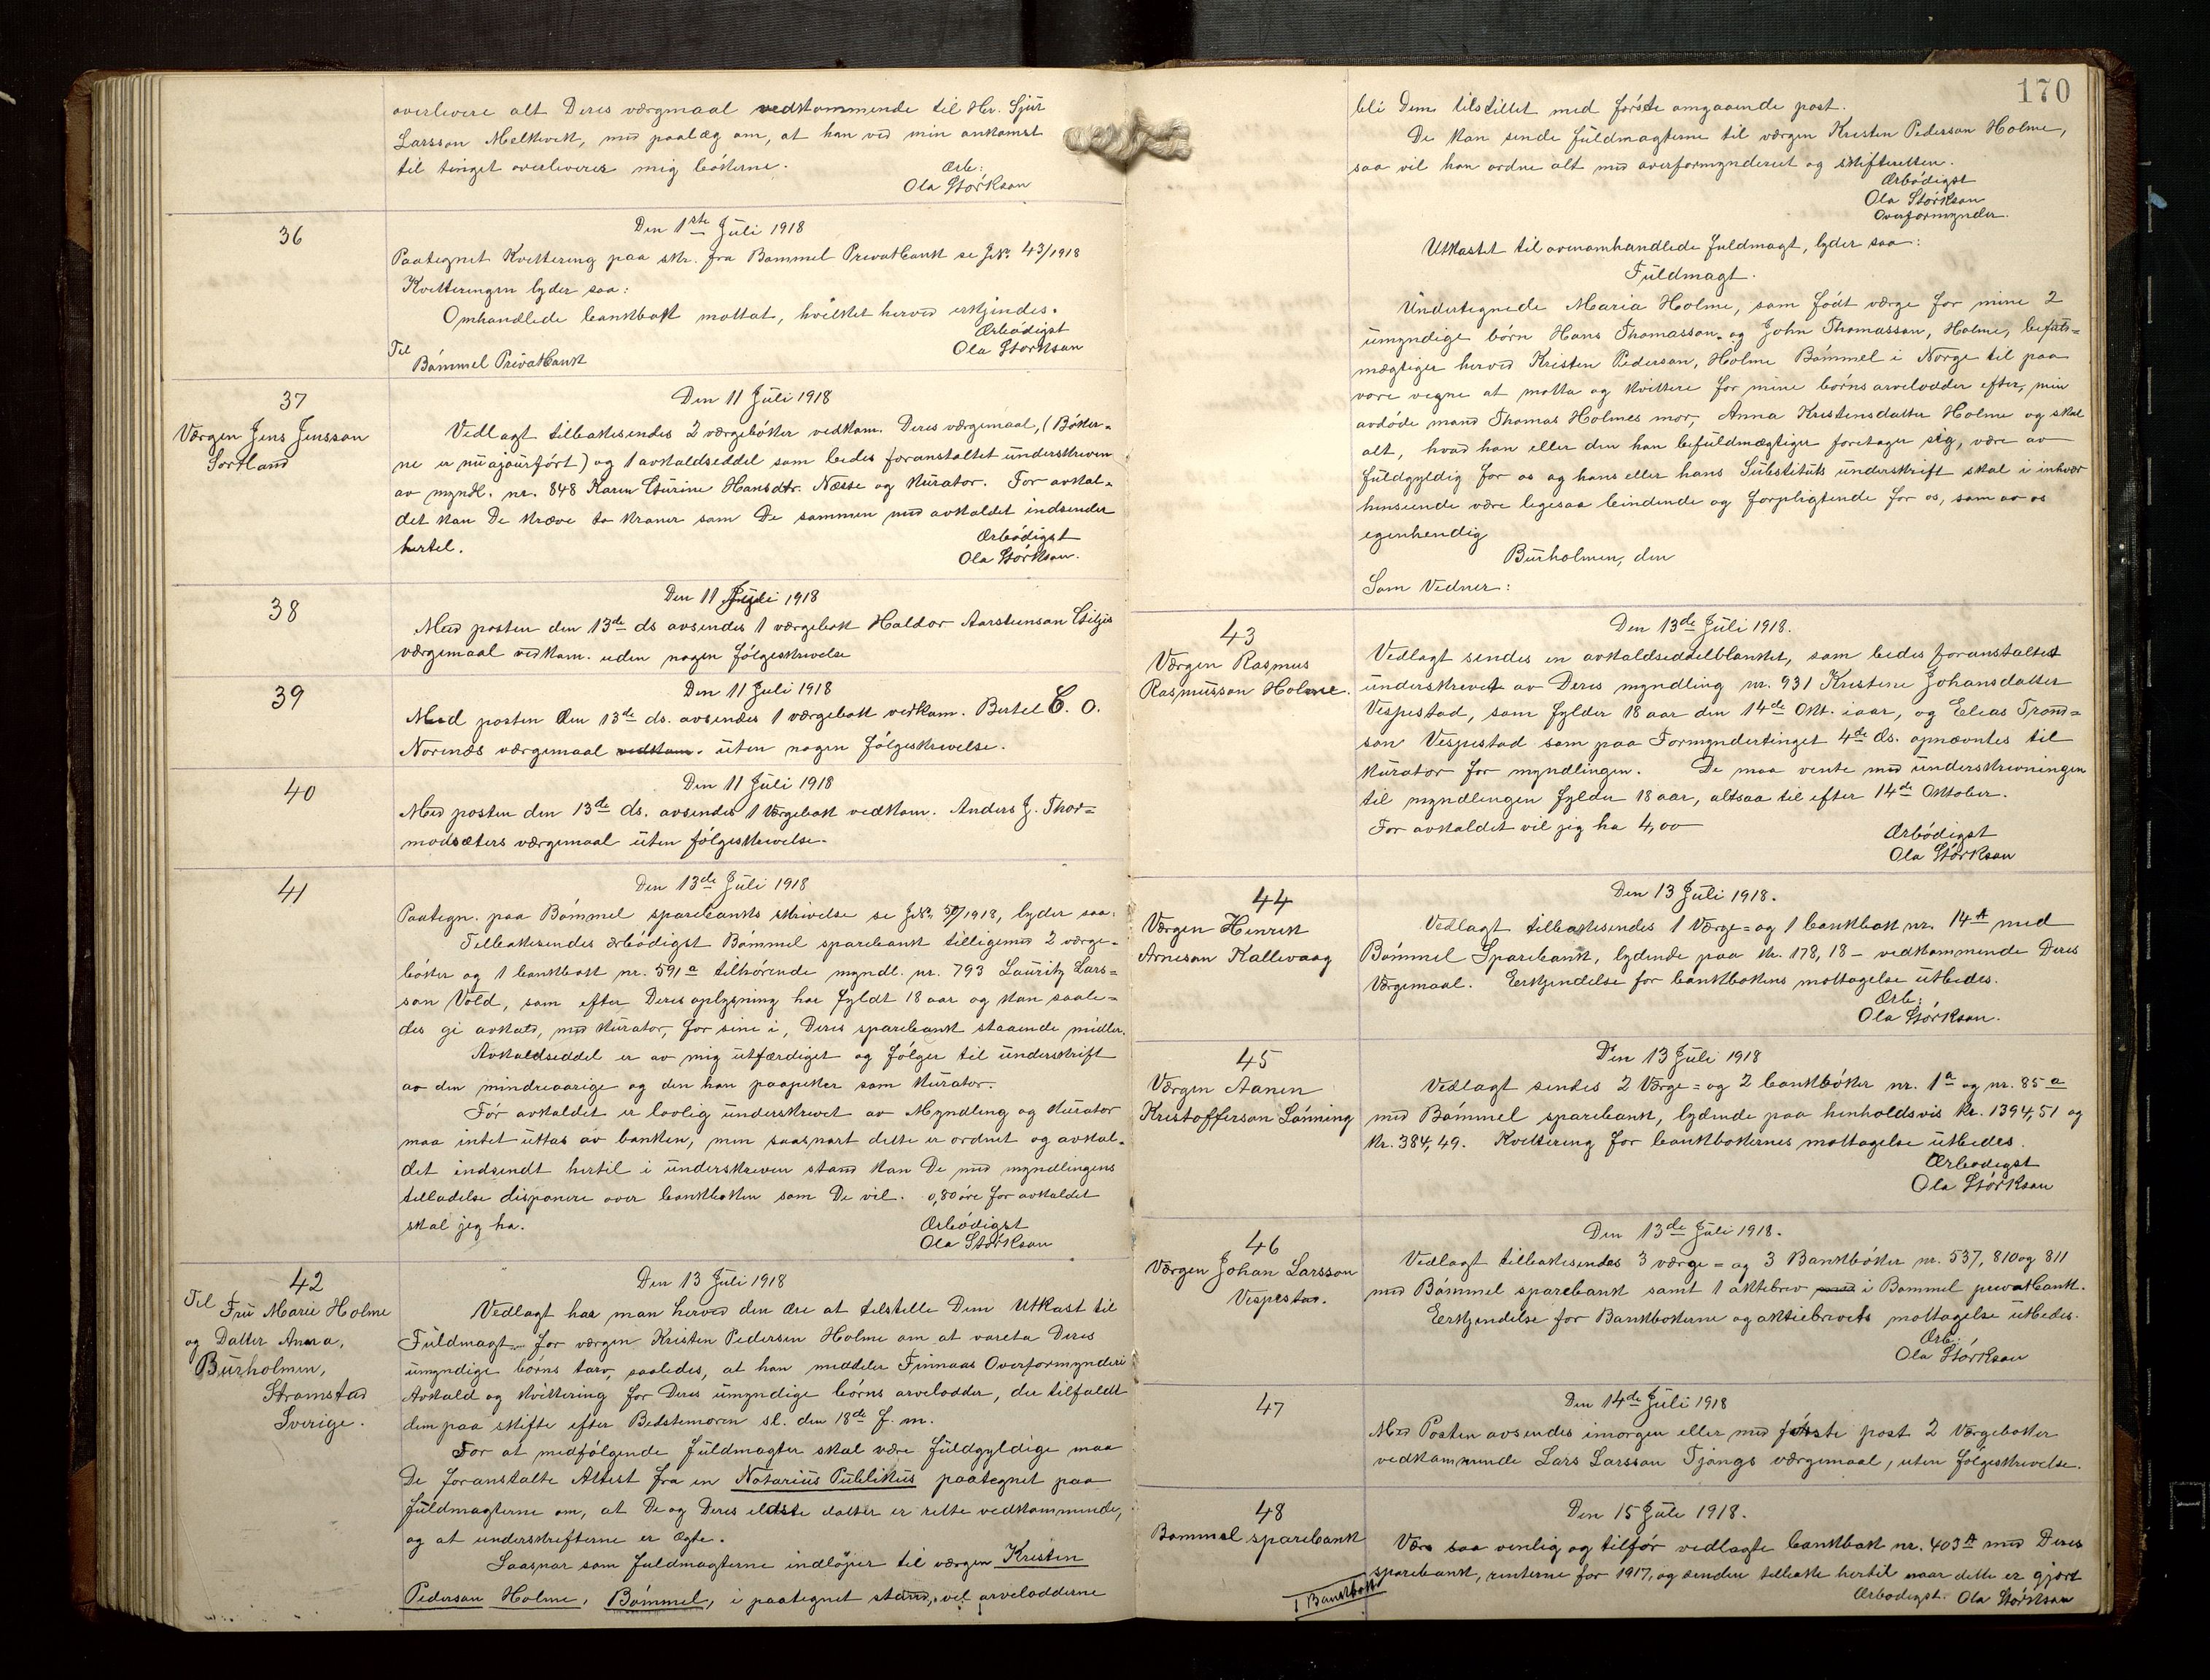 overlevere alt Deres værgmaal vedkommende til Hr. Sjur
Larsson Melkevik, med paalæg om, at han ved min ankomst
til tinget overleverer mig bökerne.
Ærb:
Ola Störkson
36
Den 1ste Juli 1918
Paategnet Kvittering paa skr. fra Bömmel Privatbank se J.Nr. 43/1918
Kvitteringen lyder saa:
Omhandlede bankbok mottat, hvilket herved erkjendes.
Ærbödigst
Til
Ola Störkson
Bömmel Privatbank
37
Værgen Jens Jensson
Sortland
Den 11 Juli 1918
Vedlagt tilbakesendes 2 værgeböker vedkom. Deres værgemaal, (Böker-
ne er nu ajourfört) og 1 avkaldseddel som bedes foranstaltet underskreven
av myndl. nr. 848 Karen Sturine Hansdtr. Næsse og kurator. For avkal-
det kan De kræve to kroner som De sammen med avkaldet indsender
hertel.
Ærbödigst
Ola Störkson.
38
Den 11 Juli 1918
Med posten den 13de ds avsendes 1 værgebok Haldor Aarsteinson
værgemaal vedkom. uden nogen fölgeskrivelse
39
Den 11 Juli 1918
Med posten den 13de ds. avsendes 1 værgebok vedkom. Bertel C. O.
Norenæs værgemaal vedkom. uten nogen fölgeskrivelse.
40
Den 11 Juli 1918
Med posten den 13de ds. avsendes 1 Værgebok vedkom. Anders J. Thor=
modsæters værgemaal uten fölgeskrivelse.
41
Den 13de Juli 1918
Paategn. paa Bömmel sparebanks skrivelse se J.Nr. 50/1918, lyder saa:
Telbakesendes ærbödigst Bömmel sparebank tilligemed 2 værge-
böker og 1 bankbok nr. 591a tilhörende myndl. nr. 793 Lauritz Lars=
son Vold, som efter Deres oplysning har fyldt 18 aar og kan saale=
des gi avkald, med kurator, for sine i, Deres sparebank staaende midler.
Avkaldseddel er av mig utfærdiget og fölger til underskrift
av den mindreaarige og den han paapeker som kurator.
För avkaldet er lovlig underskrevet av Myndling og kurator
maa intet uttas av banken, men saasnart dette er ordnet og avkal-
det indsendt hertil i underskreven stand kan De med myndlingens
tilladelse disponere over bankboken som De vil. 0,80 öre for avkaldet
skal jeg ha.
Ærbödigst
Ola Störkson
42
Til Fru Marie Holme
og Datter Anna,
Burholmen,
Strömstad
Sverige.
Den 13 Juli 1918
Vedlagt har man herved den ære at tilstelle Dem Utkast til
Fuldmagt for værgen Kristen Pederson Holme om at vareta Deres
umyndige börns tarv, saaledes, at han meddeler Finnaas Overformynderi
Avkald og kvittering for Deres umyndige börns arvelodder, der tilfaldt
dem paa skifte efter Bedstemoren sl. den 18de f. m.
For at medfölgende Fuldmagter skal være fuldgyldige maa
De foranstalte Attest fra en Notarius Publikus paategnet paa
Fuldmagterne om, at De og Deres eldste datter er rette vedkommende,
og at underskrifterne er ægte.
Saasnar som fuldmagterne indlöper til værgen Kristen
Pederson Holme, Bömmel, i paategnet stand, vil arvelodderne
170
bli Dem tilstillet med förste omgaaende post.
De kan sende fuldmagterne til værgen Kristen Pederson Holme,
saa vil han ordne alt med overformynderiet og skifteretten.
Ærbödigst
Ola Störkson
Overformynder.
Utkastet til ovenomhandlede fuldmagt, lyder saa:
Fuldmagt.
Undertegnede Maria Holme, som födt værge for mine 2
umyndige börn Hans Thomasson og John Thomasson, Holme, befuld=
mægtiger herved Kristen Pederson, Holme Bömmel i Norge til paa
vore vegne at motta og kvittere for mine börns arvelodder efter, min
avdöde mand Thomas Holmes mor, Anna Kristensdatter Holme og skal
alt, hvad han eller den han befuldmægtiger foretager sig, være av
fuldgyldig for os og hans eller hans Substituts underskrift skal i enhver
henseende være ligesaa bindende og forpligtende for os, som av os
egenhendig
Burholmen, den
Som Vedner:
43
Værgen Rasmus
Rasmusson Holme.
Den 13de Juli 1918.
Vedlagt sendes en avkaldseddelblanket, som bedes foranstaltet
underskrevet av Deres myndling nr. 931 Kristine Johansdatter
Vespestad, som fylder 18 aar den 14de Okt. iaar, og Elias Trond=
son Vespestad som paa Formyndertinget 4de ds. opnævntes til
kurator for myndlingen. De maa vente med underskrivningen
til myndlingen fylder 18 aar, altsaa til efter 14de Oktober.
For avkaldet vil jeg ha 4,00
Ærbödigst
Ola Störkson
44
Værgen Henrik
Arneson Kallevaag
Den 13 Juli 1918.
Vedlagt tilbakesendes 1 Værge= og 1 bankbok nr. 14A med
Bömmel Sparebank, lydende paa kr. 178,18 – vedkommende Deres
Værgemaal. Erkjendelse for bankbokens mottagelse utbedes.
Ærb:
Ola Störkson.
45
Værgen Aanen
Kristofferson Lönning
Den 13 Juli 1918
Vedlagt sendes 2 Værge= og 2 bankböker nr. 1a og nr. 85a
med Bömmel sparebank, lydende paa henholdsvis kr. 1394,51 og
kr. 384,49. Kvittering for bankbokernes mottagelse utbedes.
Ærbodigst
Ola Störkson
46
Værgen Johan Larsson
Vespestad.
Den 13de Juli 1918.
Vedlagt tilbakesendes 3 værge= og 3 Bankböker nr. 537, 810 og 811
med Bömmel sparebank samt 1 aktiebrev med i Bömmel privatbank.
Erkjendelse for Bankbokerne og aktiebrevets mottagelse utbedes.
Ærb.
Ola Störkson
47
Den 14de Juli 1918
Med Posten avsendes imorgen eller med förste post 2 Værgeboker
vedkommende Lars Larsson Tjongs værgemaal, uten fölgeskrivelse.
48
Bömmel sparebank
1 Bankbok
Den 15 Juli 1918.
Vær saa venlig og tilför vedlagte bankbok nr. 403A med Deres
sparebank, renterne for 1917, og sender tilbake hertil naar dette er gjort
Ærbodigst. Ola Störkson